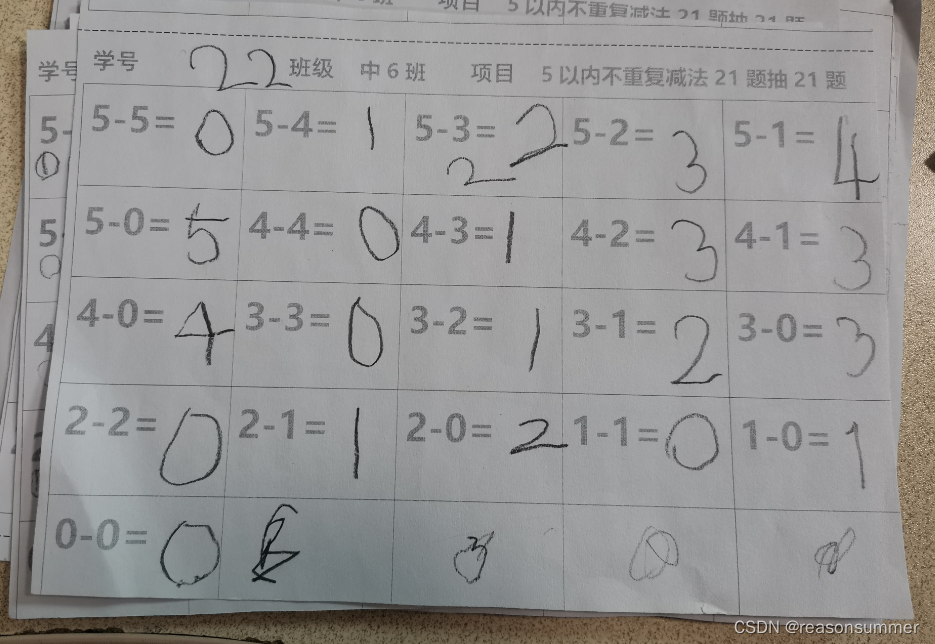 项目 5以内不重复减法21题抽21题
学号 学号 22 班级 中6班 项目 5以内不重复减法21题抽21题
5- 5-5=0 5-4=1 5-3=2 5-2=3 5-1=4
2
5 5-0=5 4-4=0 4-3=1 4-2=3 4-1=3
4 4-0=4 3-3=0 3-2=1 3-1=2 3-0=3
2-2=0 2-1=1 2-0=2 1-1=0 1-0=1
0-0=0
CSDN @reasonsummer